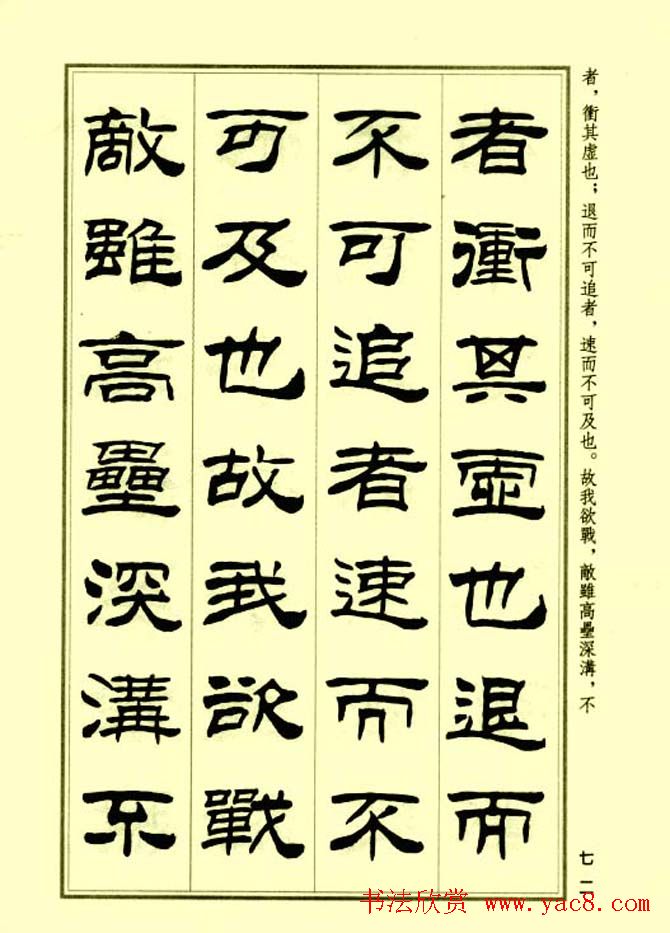 者衝其虛也退而
不可追者速而不
可及也故我欲戰
敵雖高壘深溝不
者，衝其虛也；退而不可追者，速而不可及也。故我欲戰，敵雖高壘深溝，不
七二
书法欣赏 www.yac8.com